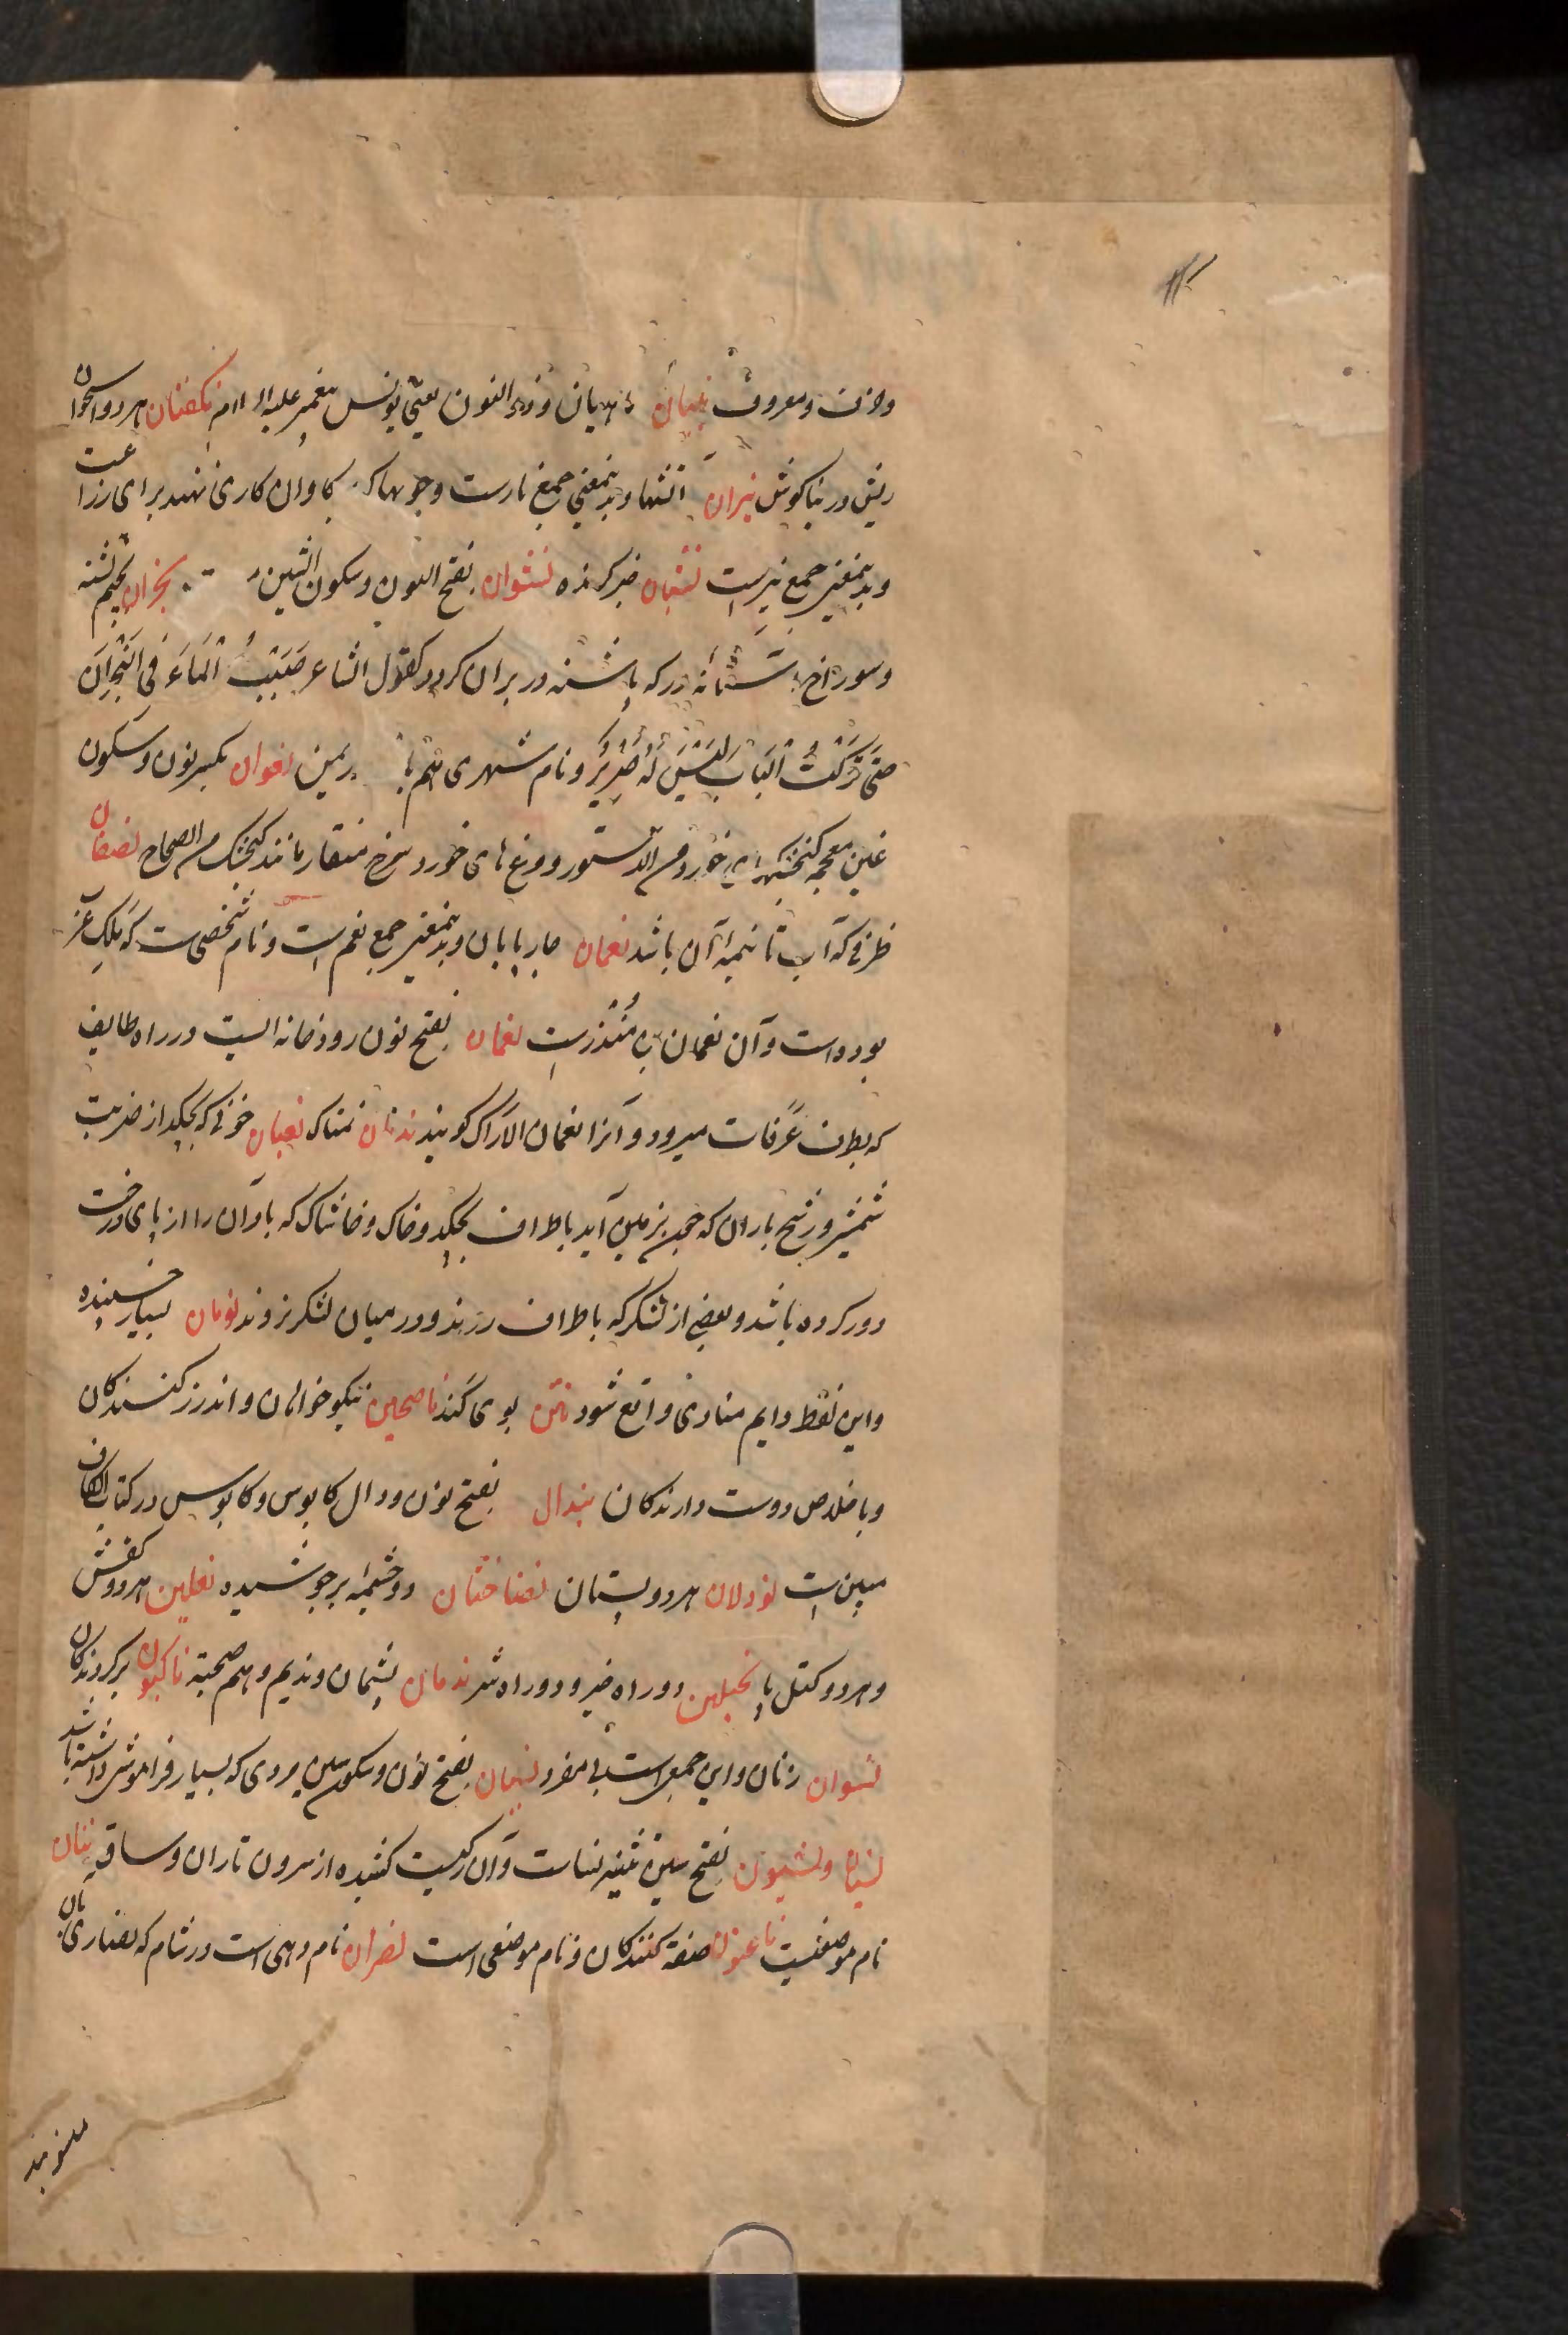 ومعروف نینان ماهیان وذو النون یعنی یونس پیغمبر علیه السلام نکفتان هر دو استخوان
ریش در بناکوش نیران آتشها وبدینمعنی جمع نارست وجوبها که بر کاوان کاری نهند برای زراعت
وبدینمعنی جمع نیرست نشیان خبر کرنده نشوان بفتح النون وسکون الشین نجران بجیم تشنه
وسوراخ آستانه در که پاشنه در بران کردد کقول الشاعر صَبَبْتُ الْمَاءَ فی النَّجْرَانِ
حتی تَرَکْتُ الْبَابَ لَیْسَ لَهُ صَرِیْرُ ونام شهری هم یمن نغران بکسر نون وسکون
غین معجمه کنجشکهای خورد من الدستور ومرغ های خورد سرخ منقار مانند کنجشک من الصحاح نصفان
ظرفی که آب تا نیمه آن باشد نعمان چارپایان وبدینمعنی جمع نعم است ونام شخصی است که ملک عرب
بوده است وآن نعمان بن مُنْذرست نعمان بفتح نون رودخانه ایست در راه طایف
که بطرف عرفات میرود وآنرا نعمان الاراک کویند ندنان نمناک نفیان خونی که بچکد از ضربت
شمشیر ورشح باران که چون بزمین آید باطراف بچکد وخاک وخاشاک که باد آن را از پای درخت
دور کرده باشد وبعضی از لشکر که باطراف روند ودر میان لشکر نروند نومان بسیار خسپنده
واین لفظ دایم منادی واقع شود نتن بوی کند ناصحین نیکو خواهان واندرز کنندکان
وباخلاص دوست دارندکان نیدلان بفتح نون ودال کابوس وکابوس در کتاب الکاف
مبین است نودلان هر دو پستان نضاختان دو چشمه برجوشیده نعلین هر دو کفش
وهر دو کتل پا نجدین دو راه خیر ودو راه شر ندمان پشیمان وندیم وهم صحبته ناکبون برکردندکان
نسوان زنان واین جمع است بی مفرد نسیان بفتح نون وسکون سین مردی که بسیار فراموش داشته باشد
نسیان ونسیون بفتح سین تثنیه نساست وآن رکیست کشیده از سرون تا ران وساق بنان
نام موضعیست ناعتون صفة کنندکان ونام موضعی است نصران نام دهی است در شام که نصاری بآن
منسوبند